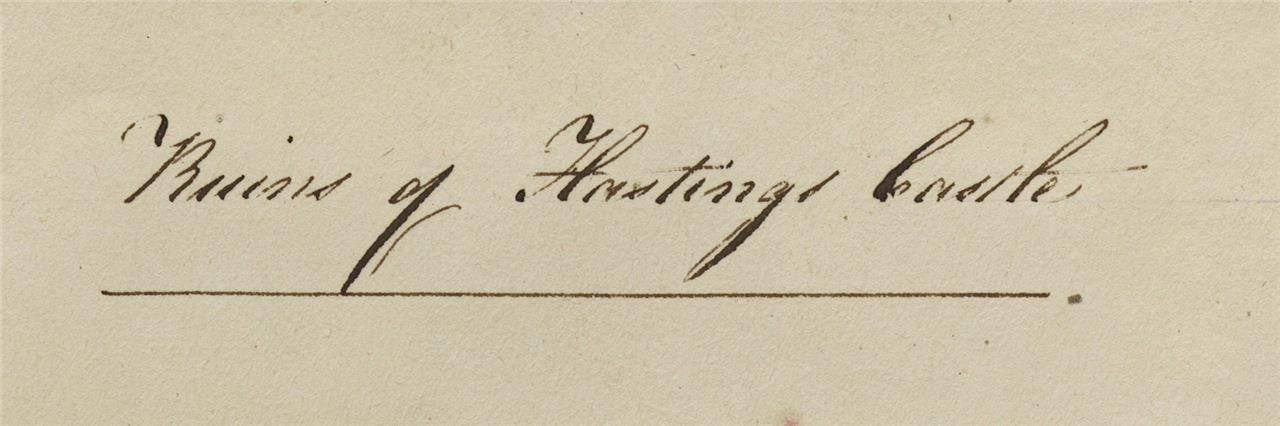 Ruins of Hastings Castle